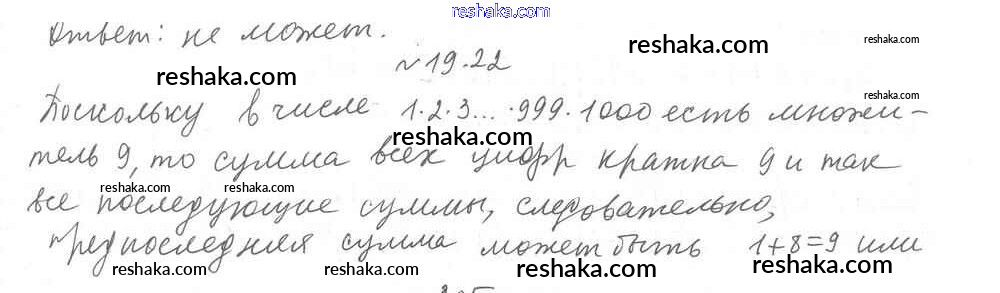 reshaka.com
Ответ: не может.
reshaka.com
reshaka.com
№19.22
reshaka.com
Поскольку в числе 1·2·3...·999·1000 есть множи-
reshaka.com
тель 9, то сумма всех цифр кратна 9 и так
reshaka.com reshaka.com reshaka.com reshaka.com
все последующие суммы, следовательно,
предпоследняя сумма может быть 1+8=9 или
reshaka.com reshaka.com reshaka.com reshaka.com